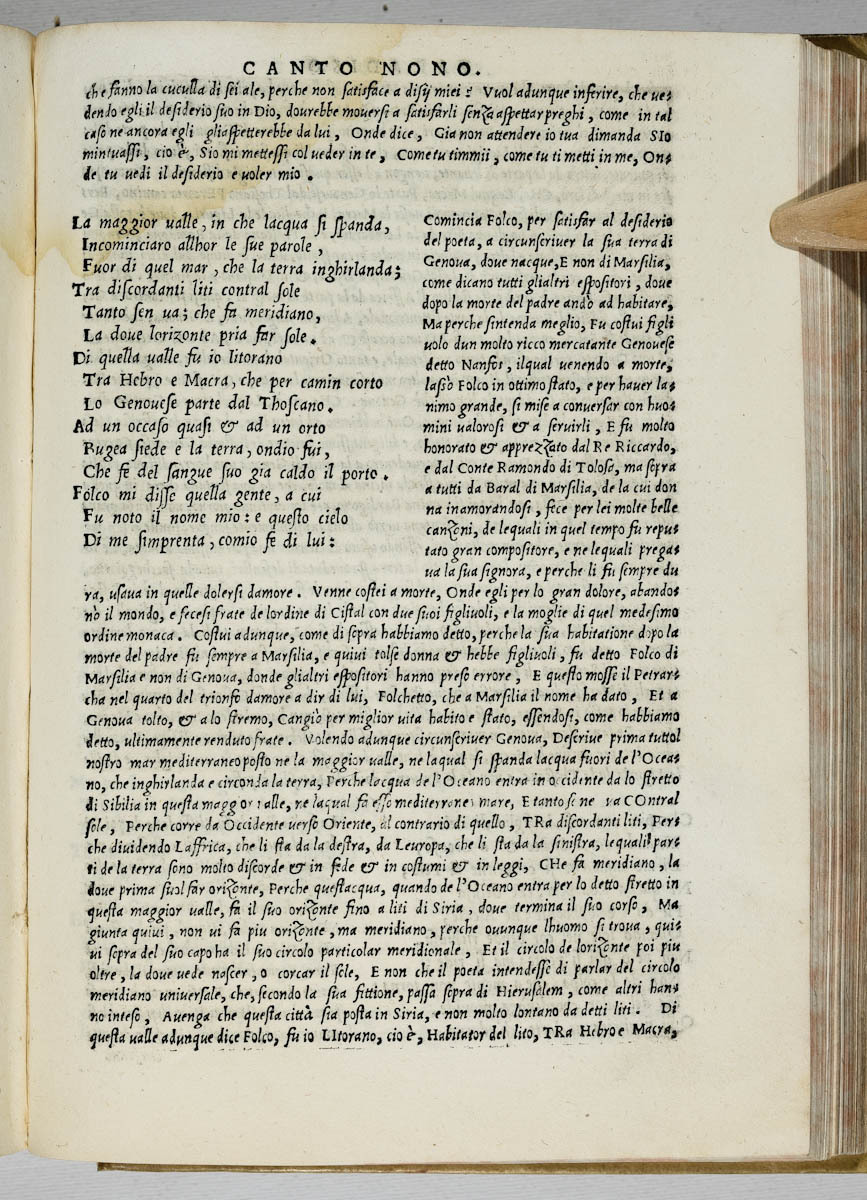 CANTO NONO.
che fanno la cuculla di sei ale, perche non satisface a disij miei? Vuol adunque inferire, che ue=
dendo egli il desiderio suo in Dio, dourebbe mouersi a satisfarli senza aspettar preghi, come in tal
caso ne ancora egli gliaspetterebbe da lui, Onde dice, Gia non attendere io tua dimanda SIo
mintuassi, cio è, Sio mi mettessi col ueder in te, Come tu timmii, come tu ti metti in me, On=
de tu uedi il desiderio e uoler mio.
La maggior ualle, in che lacqua si spanda,
Incominciaro allhor le sue parole,
Fuor di quel mar, che la terra inghirlanda;
Tra discordanti liti contral sole
Tanto sen ua; che fa meridiano,
La doue lorizonte pria far sole.
Di quella ualle fu io litorano
Tra Hebro e Macra, che per camin corto
Lo Genouese parte dal Thoscano.
Ad un occaso quasi & ad un orto
Bugea siede e la terra, ondio fui,
Che fe del sangue suo gia caldo il porto.
Folco mi disse quella gente, a cui
Fu noto il nome mio: e questo cielo
Di me simprenta, comio fe di lui:
Comincia Folco, per satisfar al desiderio
del poeta, a circunscriuer la sua terra di
Genoua, doue nacque, E non di Marsilia,
come dicano tutti glialtri espositori, doue
dopo la morte del padre andò ad habitare,
Ma perche sintenda meglio, Fu costui figli
uolo dun molto ricco mercatante Genouese
detto Nanfos, ilqual uenendo a morte,
lasiò Folco in ottimo stato, e per hauer la=
nimo grande, si mise a conuersar con huo=
mini ualorosi & a seruirli, E fu molto
honorato & apprezzato dal Re Riccardo,
e dal Conte Ramondo di Tolosa, ma sopra
a tutti da Baral di Marsilia, de la cui don
na inamorandosi, fece per lei molte belle
canzoni, de lequali in quel tempo fu repu=
tato gran compositore, e ne lequali prega=
ua la sua signora, e perche li fu sempre du
ra, usaua in quelle dolersi damore. Venne costei a morte, Onde egli per lo gran dolore, abando=
nò il mondo, e fecesi frate de lordine di Cistal con due suoi figliuoli, e la moglie di quel medesimo
ordine monaca. Costui adunque, come di sopra habbiamo detto, perche la sua habitatione dopo la
morte del padre fu sempre a Marsilia, e quiui tolse donna & hebbe figliuoli, fu detto Folco di
Marsilia e non di Genoua, donde glialtri espositori hanno preso errore, E questo mosse il Petrar=
cha nel quarto del trionfo damore a dir di lui, Folchetto, che a Marsilia il nome ha dato, Et a
Genoua tolto, & a lo stremo, Cangiò per miglior uita habito e stato, essendosi, come habbiamo
detto, ultimamente renduto frate. Volendo adunque circunscriuer Genoua, Descriue prima tuttol
nostro mar mediterraneo posto ne la maggior ualle, ne laqual si spanda lacqua fuori de l'Ocea=
no, che inghirlanda e circonda la terra, Perche lacqua de l'Oceano entra in occidente da lo stretto
di Sibilia in questa maggior ualle, ne laqual fa esso mediterraneo mare, E tanto se ne ua COntral
sole, Perche corre da Occidente uerso Oriente, al contrario di quello, TRa discordanti liti, Per=
che diuidendo Laffrica, che li sta da la destra, da Leuropa, che li sta da la sinistra, lequali par=
ti de la terra sono molto discorde & in fede & in costumi & in leggi, CHe fa meridiano, la
doue prima suol far orizonte, Perche questacqua, quando de l'Oceano entra per lo detto stretto in
questa maggior ualle, fa il suo orizonte fino a liti di Siria, doue termina il suo corso, Ma
giunta quiui, non ui fa piu orizonte, ma meridiano, perche ouunque lhuomo si troua, qui=
ui sopra del suo capo ha il suo circolo particolar meridionale, Et il circolo de lorizonte poi piu
oltre, la doue uede nascer, o corcar il sole, E non che il poeta intendesse di parlar del circolo
meridiano uniuersale, che, secondo la sua fittione, passa sopra di Hierusalem, come altri han=
no inteso, Auenga che questa città sia posta in Siria, e non molto lontano da detti liti. Di
questa ualle adunque dice Folco, fu io LItorano, cio è, Habitator del lito, TRa Hebro e Macra,